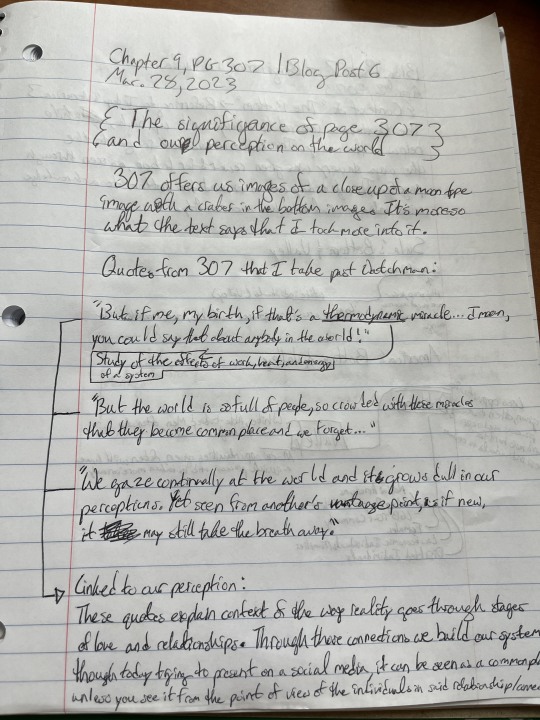 Chapter 9, PG 307 | Blog Post 6
Mar. 28, 2023
{ The significance of page 307 }
{ and our perception on the world }
307 offers us images of a close up of a moon type
image with a crater in the bottom images. It's more so
what the text says that I took more into it.
Quotes from 307 that I take past Watchman:
"But if me, my birth, if that's a thermodynamic miracle... I mean,
you could say that about anybody in the world!"
Study of the effects of work, heat, and energy
of a system
"But the world is so full of people, so crowded with these miracles
that they become commonplace and we forget..."
"We gaze continually at the world and it grows dull in our
perceptions. Yet seen from another's vantage point, as if new,
it may still take the breath away."
Linked to our perception:
These quotes explain context of the way reality goes through stages
of love and relationships. Through these connections we build our system
though today trying to present on a social media it can be seen as a
unless you see it from the point of view of the individuals in said relationship/